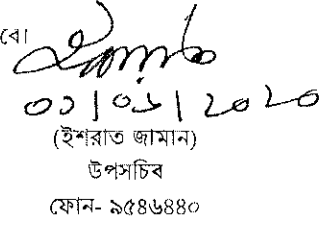 বো
০১/০৬/২০২০
(ইশরাত জামান)
উপসচিব
ফোন- ৯৫৪৬৪৪০